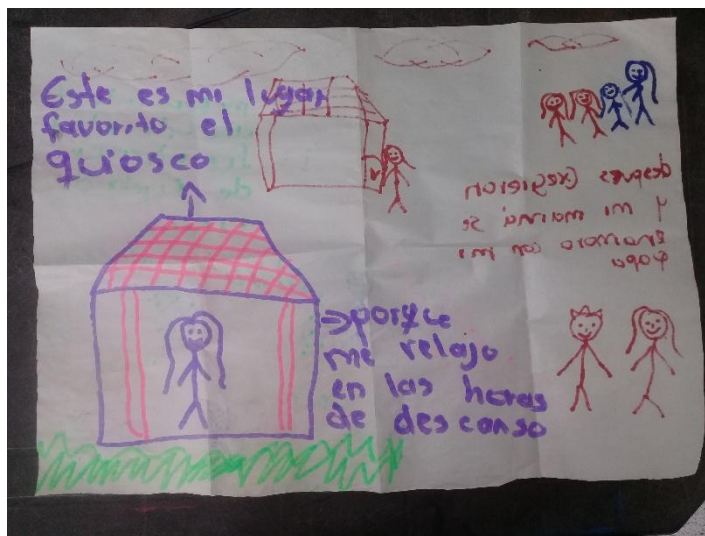 Este es mi lugar
favorito el
quiosco
→ porqce
me relajo
en las horas
de descanso
despues cregieron
y mi mamá se
enamoro con mi
papa